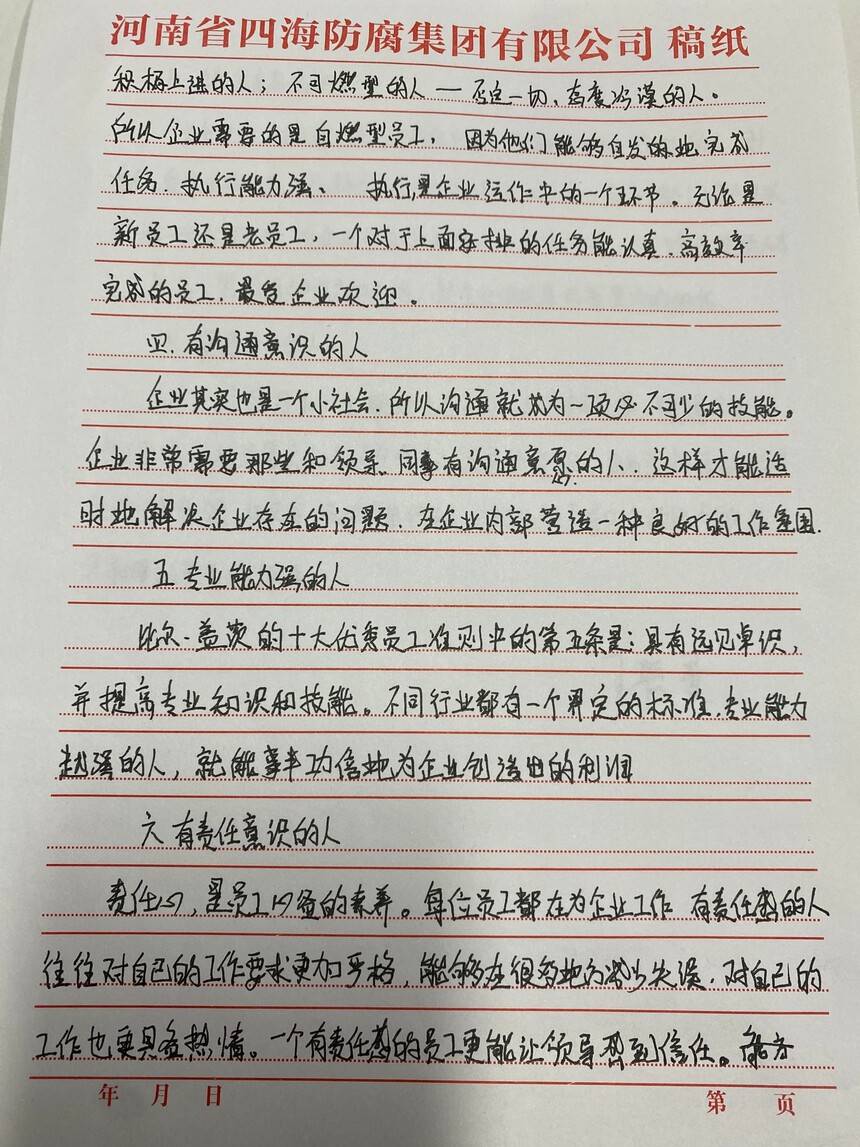 河南省四海防腐集团有限公司 稿纸
积极上进的人；不可燃型的人——否定一切、态度冷漠的人。
所以企业需要的是自燃型员工，因为他们能够自发的地完成
任务．执行能力强、执行，是企业运作中的一个环节。无论是
新员工还是老员工，一个对于上面安排的任务能认真、高效率
完成的员工，最受企业欢迎。
四．有沟通意识的人
企业其实也是一个小社会．所以沟通就成为一项必不可少的技能。
企业非常需要那些和领导、同事有沟通意愿的人．这样才能适
时地解决企业存在的问题．在企业内部营造一种良好的工作氛围．
五 专业能力强的人
比尔·盖茨的十大优秀员工准则中的第五条是：具有远见卓识，
并提高专业知识和技能。不同行业都有一个界定的标准．专业能力
越强的人，就能事半功倍地为企业创造出的利润
六 有责任意识的人
责任心，是员工必备的素养。每位员工都在为企业工作 有责任感的人
往往对自己的工作要求更加严格，能够在很多地方减少失误．对自己的
工作也更具备热情。一个有责任感的员工更能让领导感到信任。能力
年 月 日
第 页